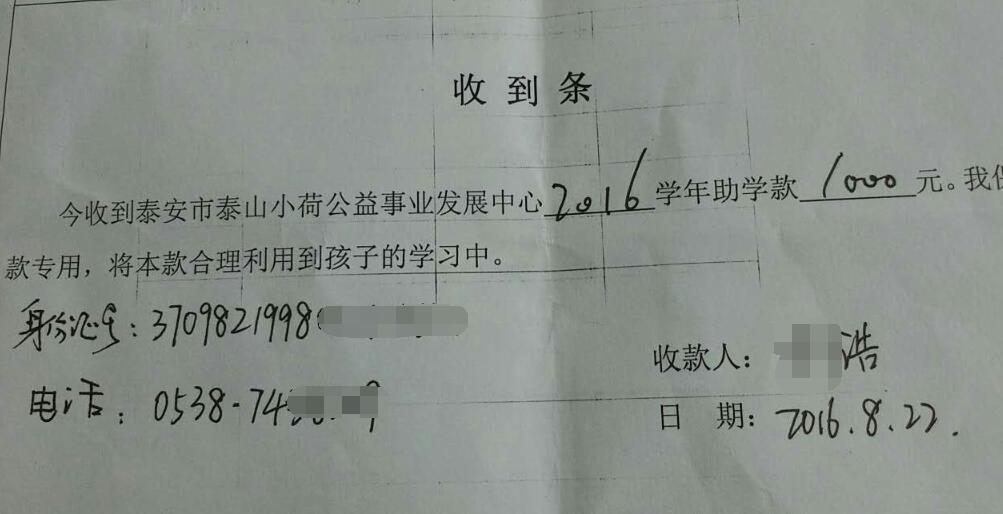 收到条
今收到泰安市泰山小荷公益事业发展中心2016学年助学款1000元。我
款专用，将本款合理利用到孩子的学习中。
身份证号：3709821998
电话：0538-74
收款人：浩
日 期：2016.8.22.